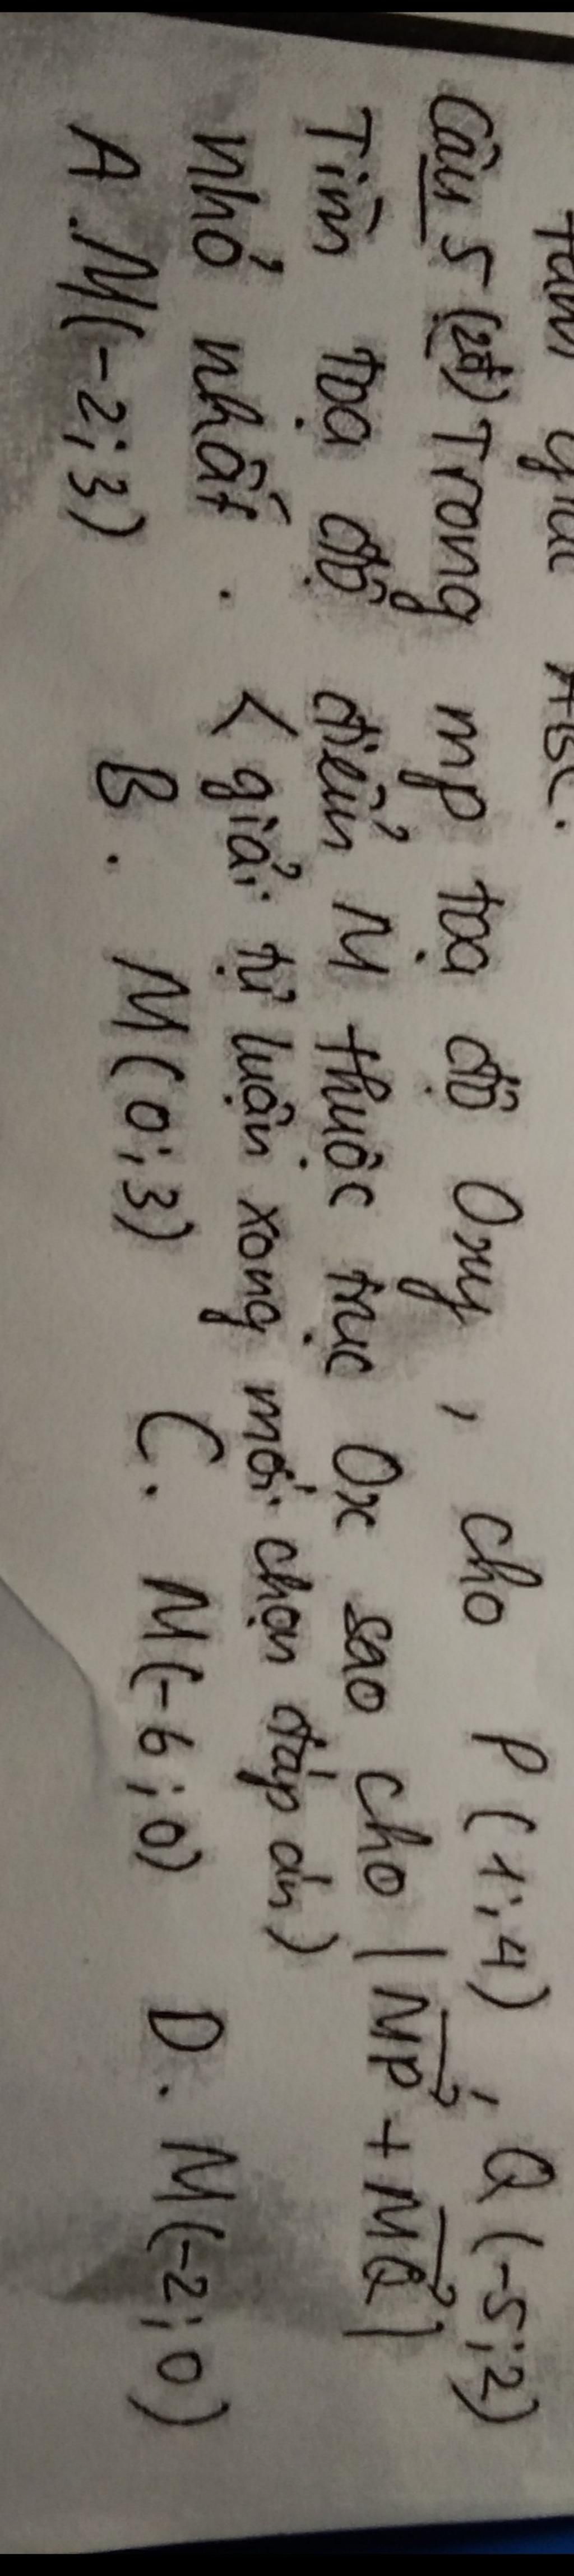 tam giác ABC.
Câu 5 (2đ) Trong mp tọa độ Oxy, cho P(1;4), Q(-5;2)
Tìm tọa độ điểm M thuộc trục Ox sao cho |MP + MQ|
nhỏ nhất. < giải tự luận xong mới chọn đáp án)
A. M(-2;3) B. M(0;3) C. M(-6;0) D. M(-2;0)